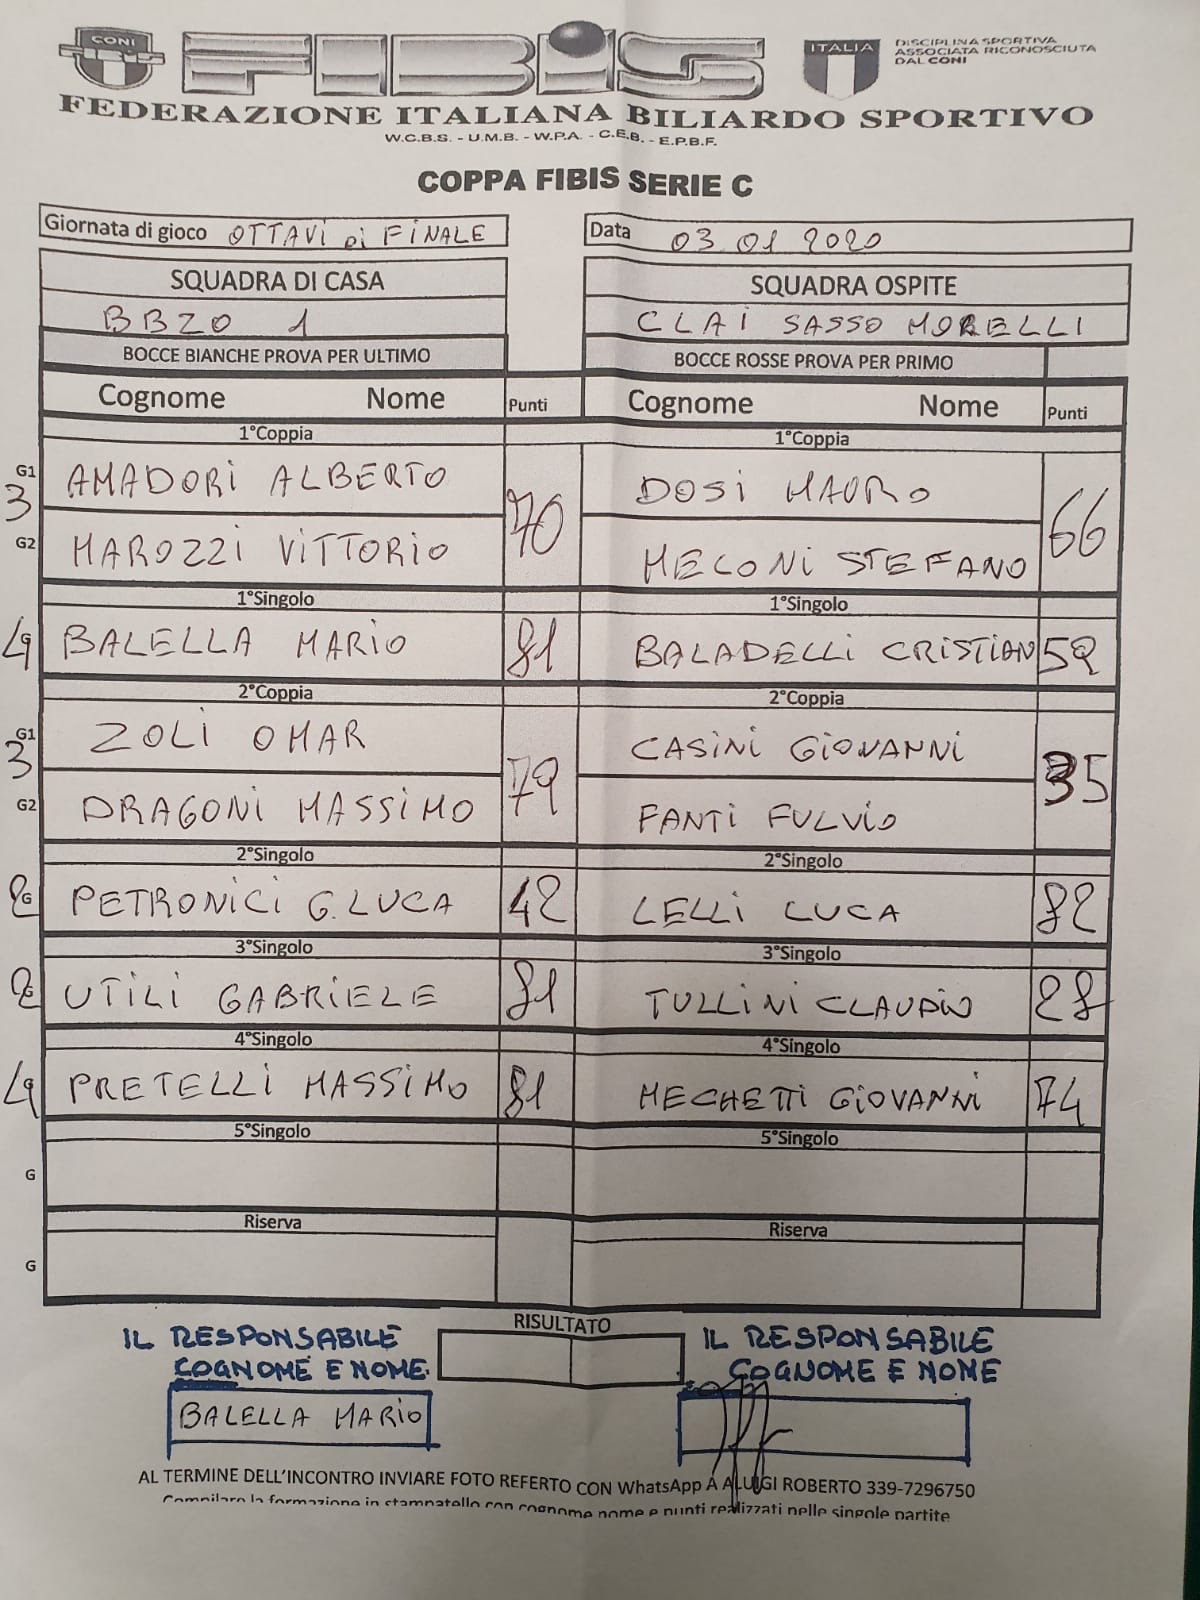 CONI
FIBiS
ITALIA
DISCIPLINA SPORTIVA
ASSOCIATA RICONOSCIUTA
DAL CONI
FEDERAZIONE ITALIANA BILIARDO SPORTIVO
W.C.B.S. - U.M.B. - W.P.A. - C.E.B. - E.P.B.F.
COPPA FIBIS SERIE C
Giornata di gioco OTTAVI di FINALE Data 03 01 2020
SQUADRA DI CASA SQUADRA OSPITE
BBZO 1 CLAI SASSO MORELLI
BOCCE BIANCHE PROVA PER ULTIMO BOCCE ROSSE PROVA PER PRIMO
Cognome Nome Punti Cognome Nome Punti
1°Coppia 1°Coppia
G1 AMADORI ALBERTO DOSI MAURO
3 70 66
G2 MAROZZI VITTORIO MECONI STEFANO
1°Singolo 1°Singolo
4 G BALELLA MARIO 81 BALADELLI CRISTIAN 52
2°Coppia 2°Coppia
G1 ZOLI OMAR CASINI GIOVANNI
3 79 35
G2 DRAGONI MASSIMO FANTI FULVIO
2°Singolo 2°Singolo
2 G PETRONICI G.LUCA 42 LELLI LUCA 82
3°Singolo 3°Singolo
2 G UTILI GABRIELE 81 TULLINI CLAUDIO 28
4°Singolo 4°Singolo
4 G PRETELLI MASSIMO 81 MECHETTI GIOVANNI 74
5°Singolo 5°Singolo
G
Riserva Riserva
G
RISULTATO
IL RESPONSABILE IL RESPONSABILE
COGNOME E NOME. COGNOME E NOME
BALELLA MARIO
AL TERMINE DELL'INCONTRO INVIARE FOTO REFERTO CON WhatsApp A ALUIGI ROBERTO 339-7296750
Compilare la formazione in stampatello con cognome nome e punti realizzati nelle singole partite